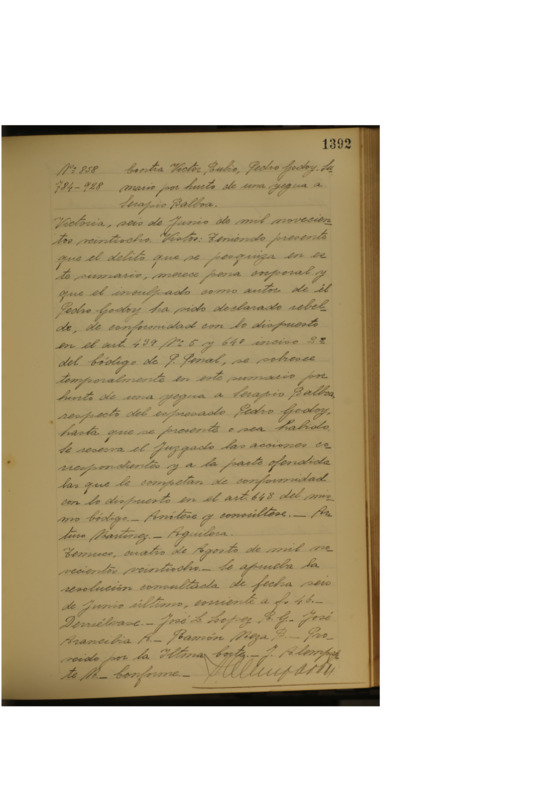 1392
Nº 858 Contra Victor Rubio, Pedro Godoy. Su
784-928 mario por hurto de una yegua a
Serapio Balboa.
Victoria, seis de Junio de mil novecien
tos veintiocho. Vistos: Teniendo presente
que el delito que se pesquiza en es
te sumario, merece pena corporal y
que el inculpado como autor de él
Pedro Godoy ha sido declarado rebel
de, de conformidad con lo dispuesto
en el art. 439 Nº 5 y inciso 2º
del Código de P. Penal, se sobresee
temporalmente en este sumario por
hurto de una yegua a Serapio Balboa
respecto del expresado Pedro Godoy,
hasta que se presente o sea habido.
Se reserva el Juzgado las acciones co
rrespondientes y a la parte ofendida
las que le competan de conformidad
con lo dispuesto en el art. 643 del mis
mo Código.- Anótese y consúltese.- Ar
turo Martinez.- Aguilera.
Temuco, cuatro de Agosto de mil no
vecientos veintiocho.- Se aprueba la
resolucion consultada de fecha seis
de Junio último, corriente a fs. 46.-
Devuélvase.- José L. Lopez R. G.- José
Arancibia A.- Ramón Vega R.- Pro
veido por la Iltma. Corte.- J.
te M.- Conforme.-